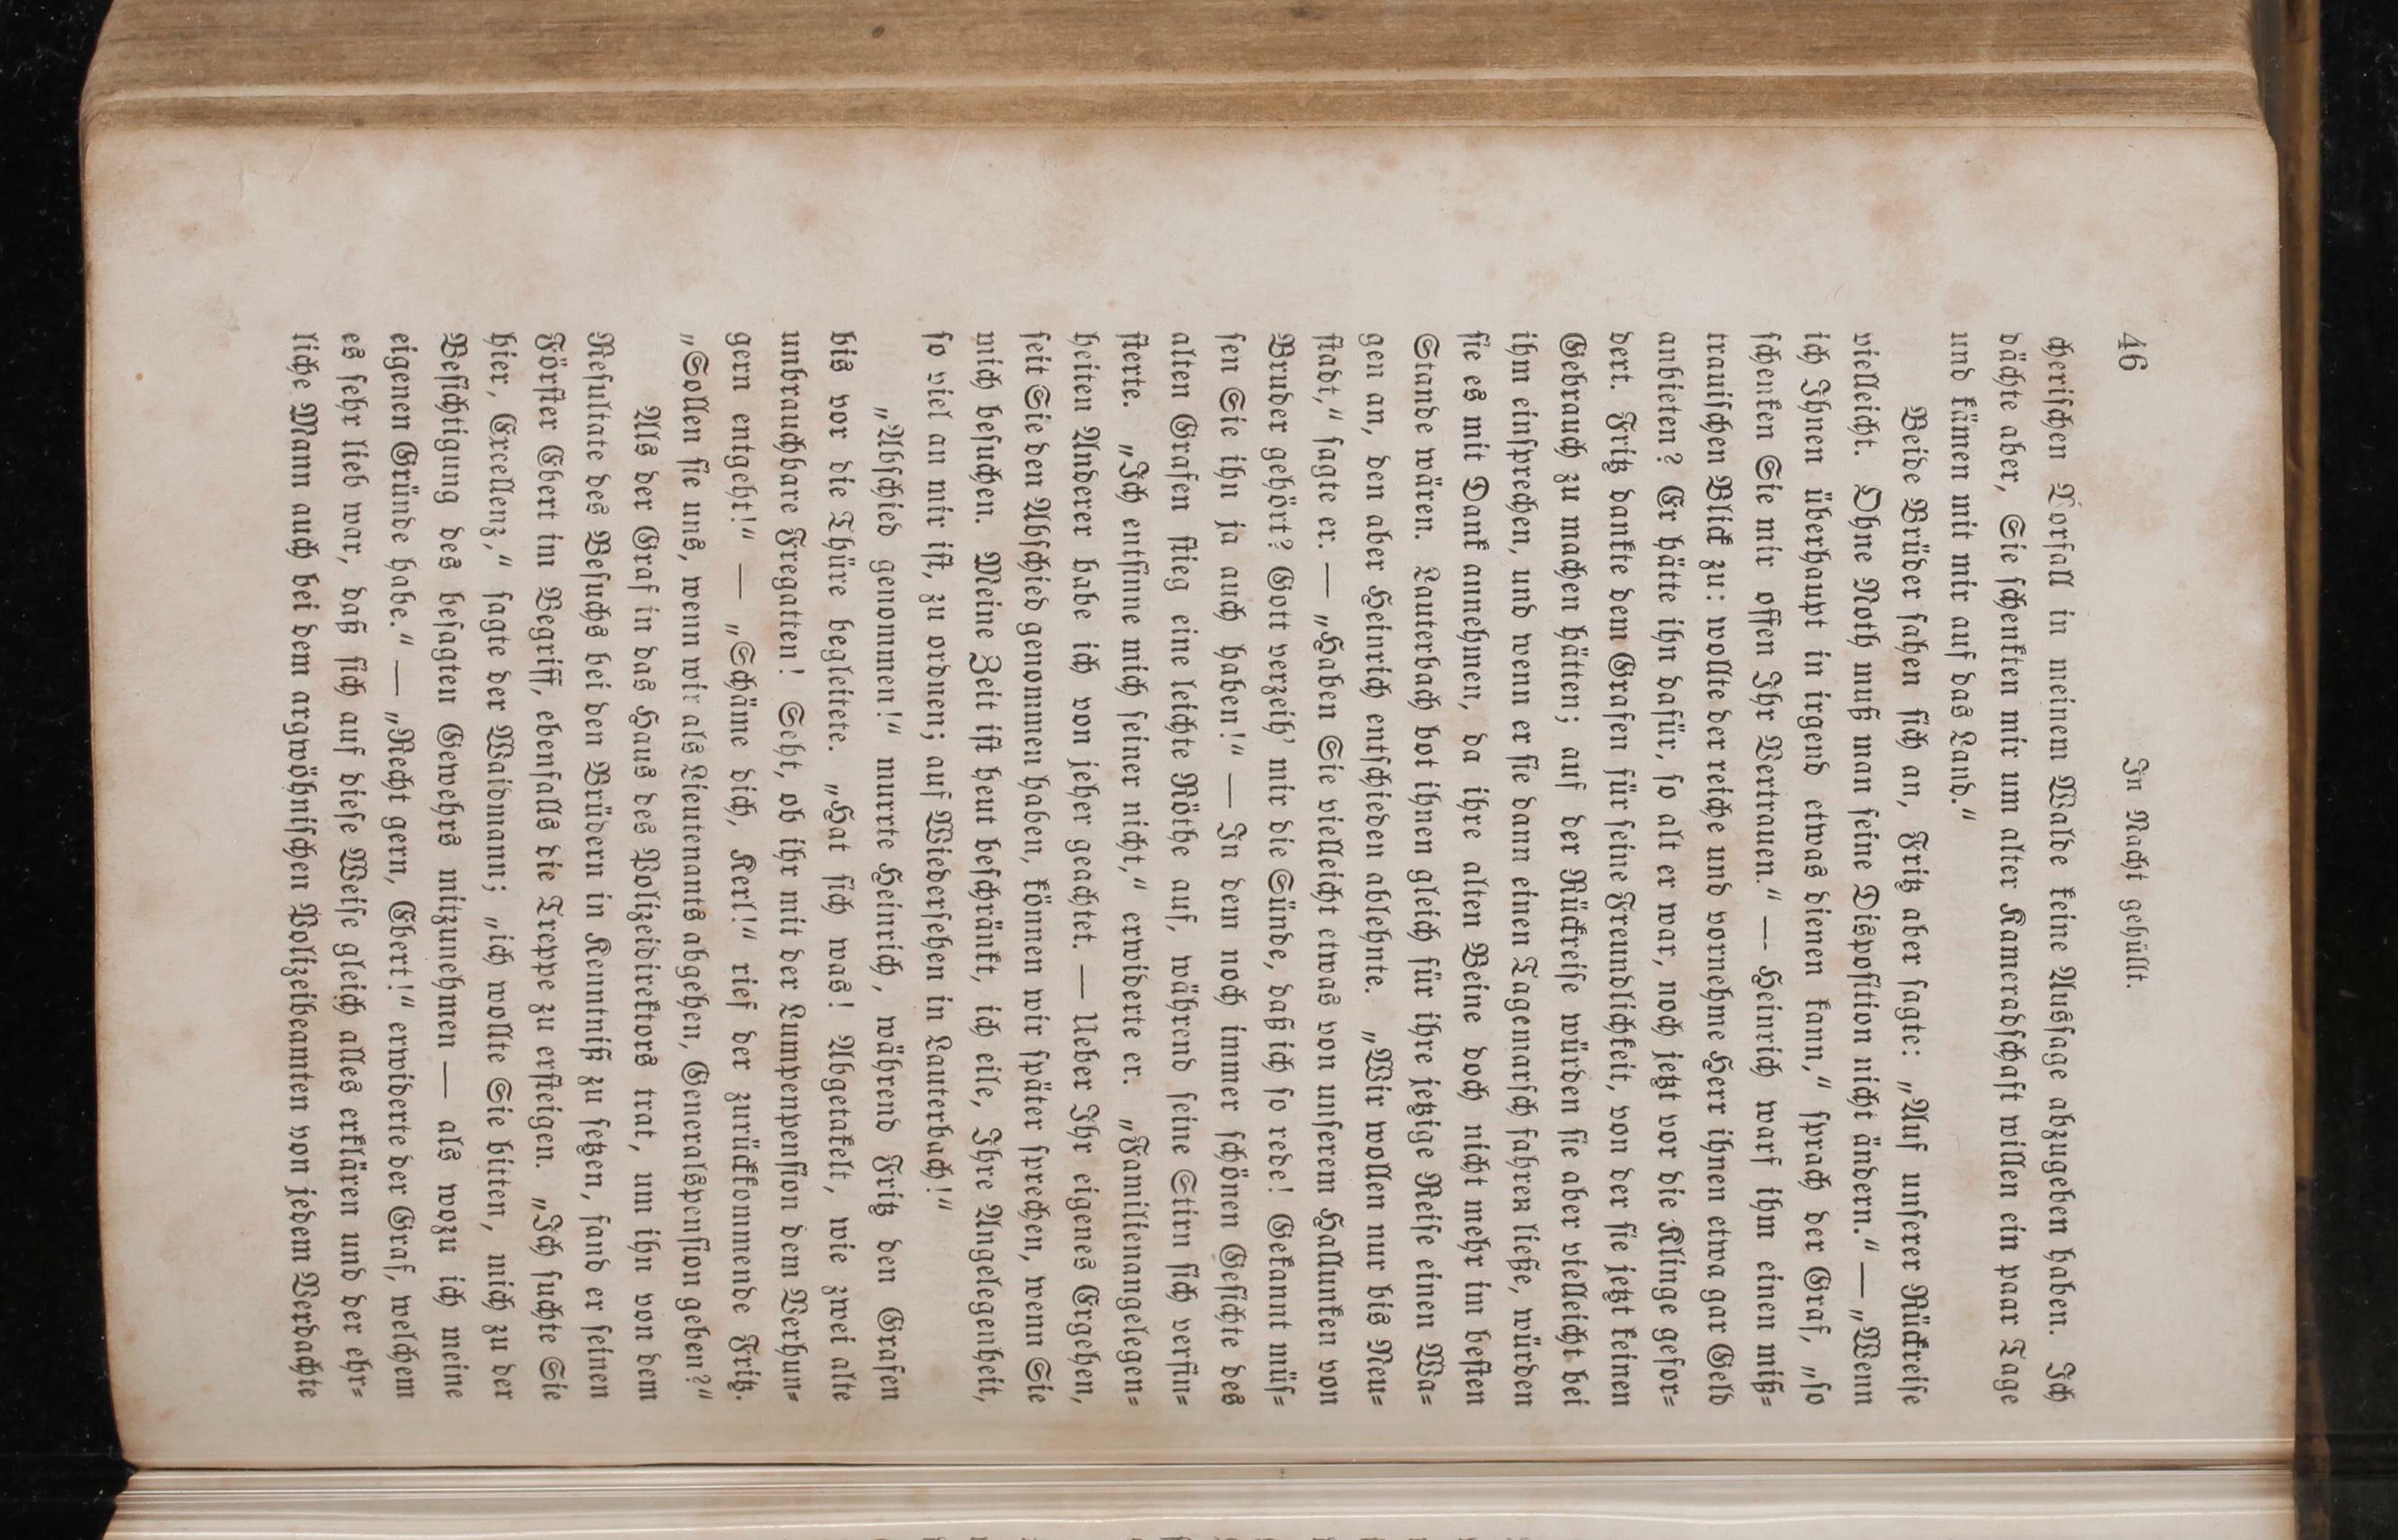 46 In Nacht gehüllt.
cherischen Vorfall in meinem Walde keine Aussage abzugeben haben. Ich
dächte aber, Sie schenkten mir um alter Kameradschaft willen ein paar Tage
und kämen mit mir auf das Land.“
Beide Brüder sahen sich an, Fritz aber sagte: „Auf unserer Rückreise
vielleicht. Ohne Noth muß man seine Disposition nicht ändern.“ — „Wenn
ich Ihnen überhaupt in irgend etwas dienen kann,“ sprach der Graf, „so
schenken Sie mir offen Ihr Vertrauen.“ — Heinrich warf ihm einen miß-
trauischen Blick zu: wollte der reiche und vornehme Herr ihnen etwa gar Geld
anbieten? Er hätte ihn dafür, so alt er war, noch jetzt vor die Klinge gefor-
dert. Fritz dankte dem Grafen für seine Freundlichkeit, von der sie jetzt keinen
Gebrauch zu machen hätten; auf der Rückreise würden sie aber vielleicht bei
ihm einsprechen, und wenn er sie dann einen Tagemarsch fahren ließe, würden
sie es mit Dank annehmen, da ihre alten Beine doch nicht mehr im besten
Stande wären. Lauterbach bot ihnen gleich für ihre jetzige Reise einen Wa-
gen an, den aber Heinrich entschieden ablehnte. „Wir wollen nur bis Neu-
stadt,“ sagte er. — „Haben Sie vielleicht etwas von unserem Hallunken von
Bruder gehört? Gott verzeih’ mir die Sünde, daß ich so rede! Gekannt müs-
sen Sie ihn ja auch haben!“ — In dem noch immer schönen Gesichte des
alten Grafen stieg eine leichte Röthe auf, während seine Stirn sich verfin-
sterte. „Ich entsinne mich seiner nicht,“ erwiderte er. „Familienangelegen-
heiten Anderer habe ich von jeher geachtet. — Ueber Ihr eigenes Ergehen,
seit Sie den Abschied genommen haben, können wir später sprechen, wenn Sie
mich besuchen. Meine Zeit ist heut beschränkt, ich eile, Ihre Angelegenheit,
so viel an mir ist, zu ordnen; auf Wiedersehen in Lauterbach!“
„Abschied genommen!“ murrte Heinrich, während Fritz den Grafen
bis vor die Thüre begleitete. „Hat sich was! Abgetakelt, wie zwei alte
unbrauchbare Fregatten! Seht, ob ihr mit der Lumpenpension dem Verhun-
gern entgeht!“ — „Schäme dich, Kerl!“ rief der zurückkommende Fritz.
„Sollen sie uns, wenn wir als Lieutenants abgehen, Generalspension geben?“
Als der Graf in das Haus des Polizeidirektors trat, um ihn von dem
Resultate des Besuchs bei den Brüdern in Kenntniß zu setzen, fand er seinen
Förster Ebert im Begriff, ebenfalls die Treppe zu ersteigen. „Ich suchte Sie
hier, Excellenz,“ sagte der Waidmann; „ich wollte Sie bitten, mich zu der
Besichtigung des besagten Gewehrs mitzunehmen — als wozu ich meine
eigenen Gründe habe.“ — „Recht gern, Ebert!“ erwiderte der Graf, welchem
es sehr lieb war, daß sich auf diese Weise gleich alles erklären und der ehr-
liche Mann auch bei dem argwöhnischen Polizeibeamten von jedem Verdachte